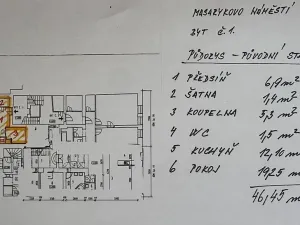 MASARYKOVO NÁMĚSTÍ
BYT Č.1.
PŮDORYS - PŮVODNÍ
1 PŘEDSÍŇ 6,9 m²
2 ŠATNA 1,4 m²
3 KOUPELNA 5,3 m²
4 WC 1,5 m²
5 KUCHYŇ 12,10 m²
6 POKOJ 19,25 m
46,45 m